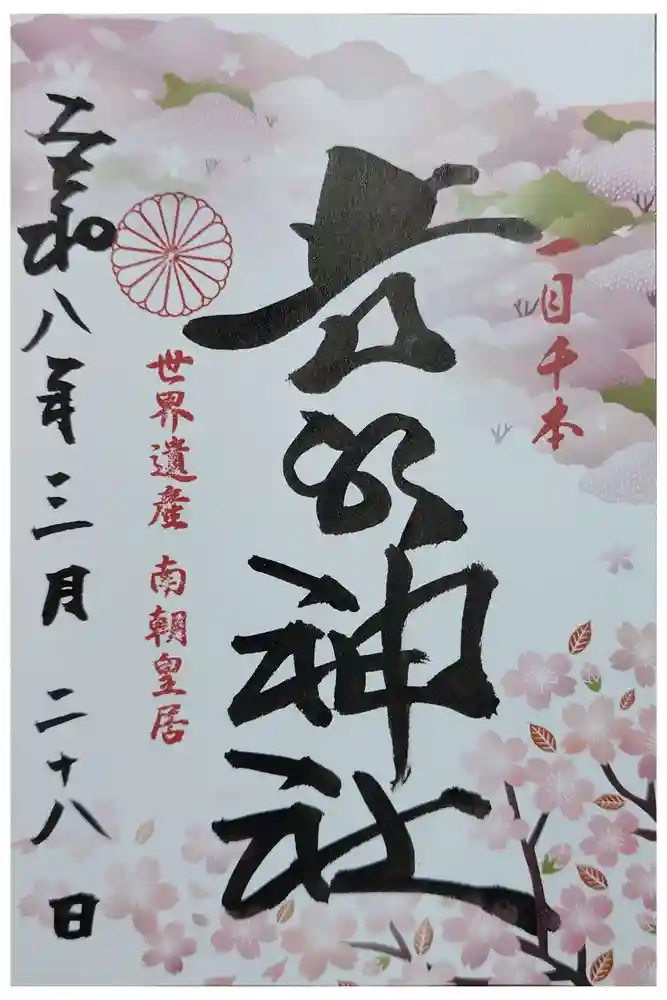 一目千本
吉水神社
世界遺産 南朝皇居
令和八年三月二十八日